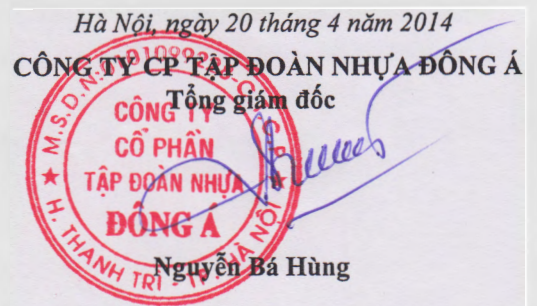 Hà Nội, ngày 20 tháng 4 năm 2014
CÔNG TY CP TẬP ĐOÀN NHỰA ĐÔNG Á
Tổng giám đốc
CÔNG TY
CỔ PHẦN
TẬP ĐOÀN NHỰA
ĐÔNG Á
M.S.D.N:
H. THANH TRÌ - TP. HÀ NỘI
Nguyễn Bá Hùng